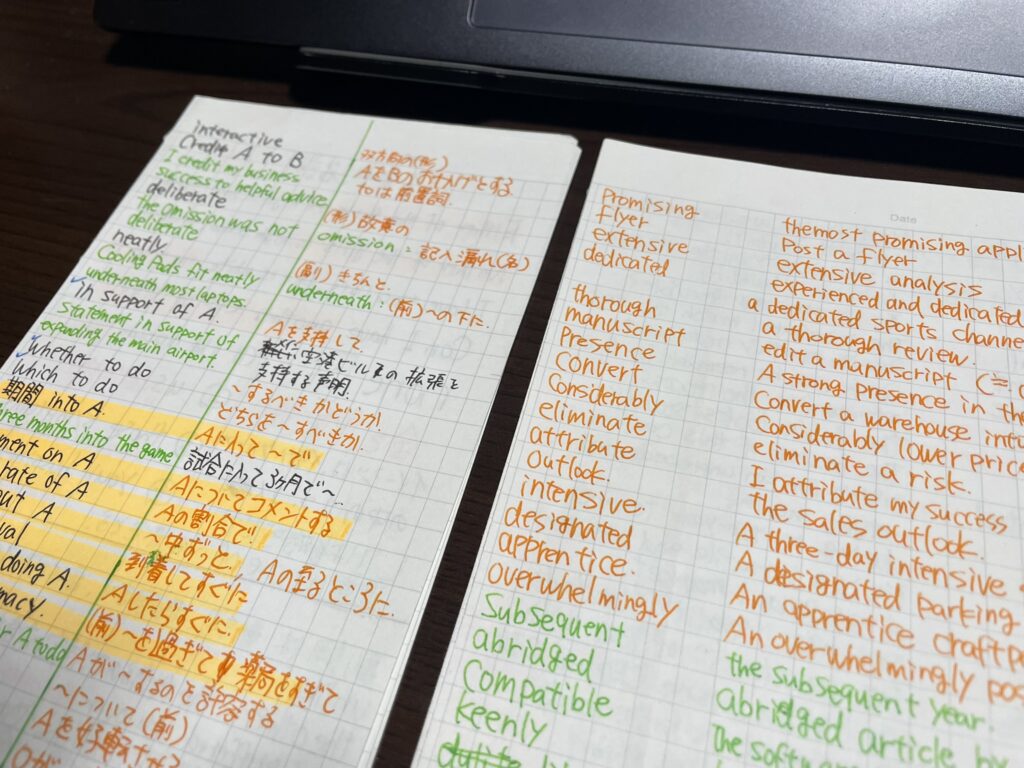 interactive
Credit A to B
I credit my business
success to helpful advice
deliberate
the omission was not
deliberate
neatly
Cooling Pads fit neatly
underneath most laptops.
in support of A
statement in support of
expanding the main airport.
Whether to do
which to do
期間 into A.
three months into the game
ment on A
rate of A
out A
val
doing A.
macy.
r A to do
双方向の(形)
AをBのおかげとする
toは前置詞.
(形)故意の
omission : 記入漏れ(名)
(副)きちんと
underneath : (前)〜の下に.
Aを支持して
空港ビルの拡張を
支持する声明.
〜するべきかどうか.
どちらを〜すべきか.
Aに入って〜で
試合に入って3ヶ月で〜
Aについてコメントする
Aの割合で
〜中ずっと. Aの至るところに.
到着してすぐに
Aしたらすぐに.
(前)〜を過ぎて 薬局をすぎて
Aが〜するのを許容する
〜について(前)
Aを好転させる
Date
Promising
flyer
extensive
dedicated
thorough
manuscript
Presence
Convert
Considerably
eliminate
attribute
Outlook.
intensive.
designated
apprentice.
overwhelmingly
Subsequent
abridged
Compatible
keenly
the most promising appl
Post a flyer
extensive analysis
experienced and dedicated
a dedicated sports channe
a thorough review.
edit a manuscript
A strong presence in th
Convert a warehouse int
Considerably lower price
eliminate a risk.
I attribute my success
the sales outlook.
A three-day intensive
A designated parking
An apprentice craftpe
An overwhelmingly pos
the subsequent year.
Abridged article by
the softwar